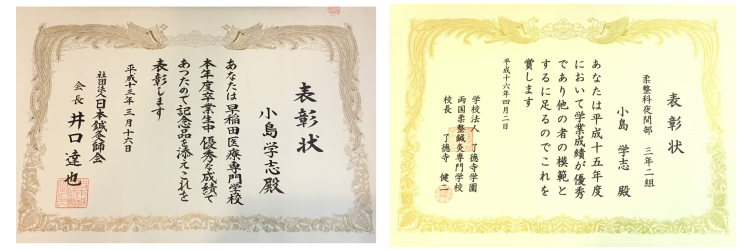 表彰状
小島学志殿
あなたは早稲田医療専門学校
本年度卒業生中優秀な成績で
あつたので記念品を添えこれを
表彰します
平成十三年三月十六日
社団法人日本鍼灸師会
会長 井口達也
表彰状
柔整科夜間部 三年二組
小島 学志 殿
あなたは平成十五年度
において学業成績が優秀
であり他の者の模範と
するに足るのでこれを
賞します
平成十六年四月二日
学校法人 了德寺学園
両国柔整鍼灸専門学校
校長 了德寺 健二